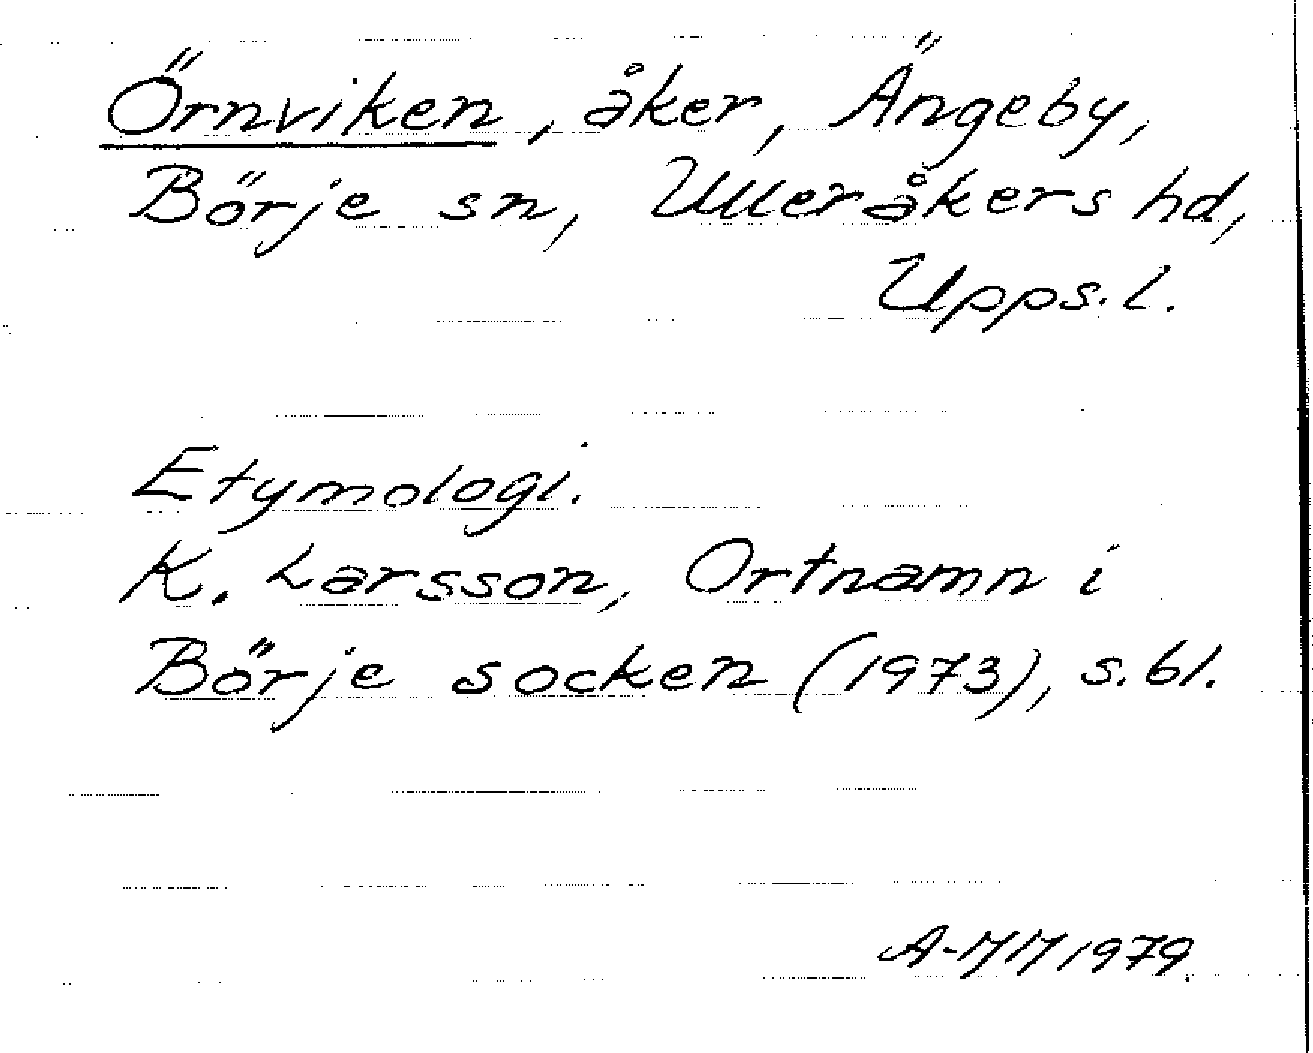 Örnviken, åker, Ängeby,
Börje sn, Ulleråkers hd,
Upps. l.
Etymologi.
K. Larsson, Ortnamn i
Börje socken (1973), s. 61.
A-MM 1979.